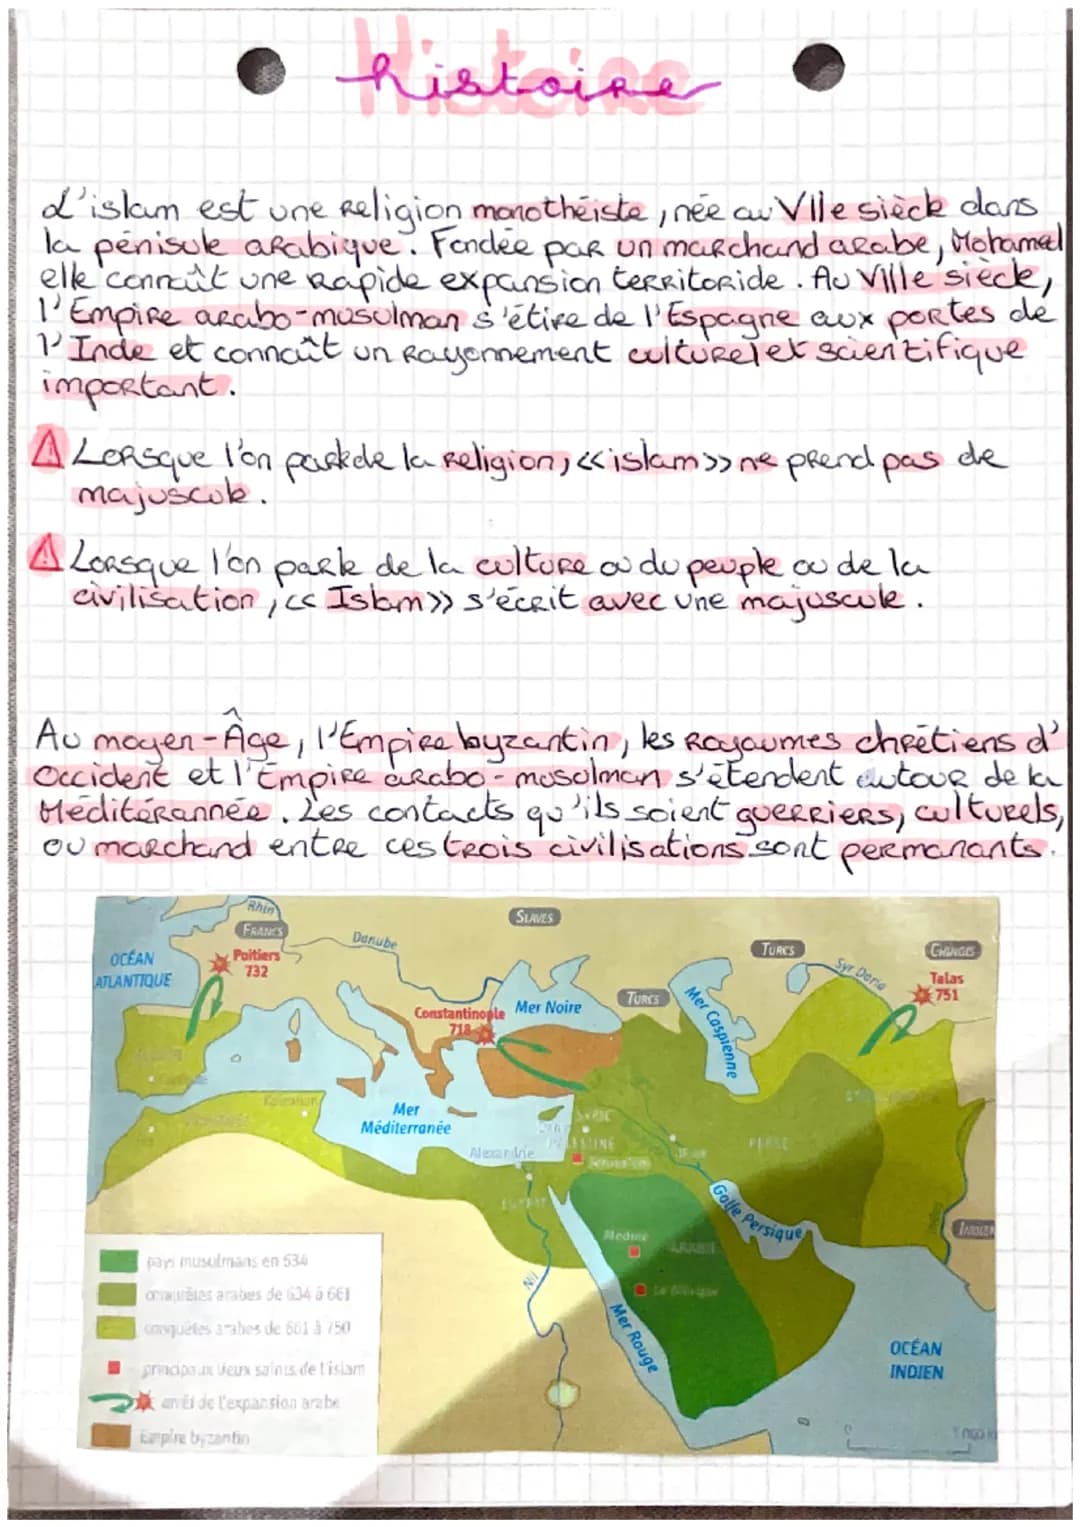 Histoire
histoire
L'islam est une religion monothéiste, née au VIIe siècle dans
la pénisule arabique. Fondée par un marchand arabe, Mohamed
elle connaît une rapide expansion territoriale. Au VIIIe siècle,
l'Empire arabo-musulman s'étire de l'Espagne aux portes de
l'Inde et connaît un rayonnement culturel et scientifique
important.
⚠ Lorsque l'on parle de la religion, «islam» ne prend pas de
majuscule.
⚠ Lorsque l'on parle de la culture ou du peuple ou de la
civilisation, «Islam» s'écrit avec une majuscule.
Au moyen-Âge, l'Empire byzantin, les Royaumes chrétiens d'
Occident et l'Empire arabo-musulman s'étendent autour de la
Méditérannée. Les contacts qu'ils soient guerriers, culturels,
ou marchand entre ces trois civilisations sont permanants.
Rhin
FRANCS
SLAVES
Danube
TURCS
CHINOIS
OCÉAN
ATLANTIQUE
Poitiers
732
Syr Daria
Talas
751
Constantinople
718
Mer Noire
TURCS
Mer Caspienne
Kairouan
Mer
Méditerranée
SYRIE
PALESTINE
PERSE
Alexandrie
Jérusalem
EGYPTE
Golfe Persique
Médine
ARABIE
La Mecque
Nil
Mer Rouge
OCÉAN
INDIEN
pays musulmans en 634
conquêtes arabes de 634 à 661
conquêtes arabes de 661 à 750
principaux lieux saints de l'islam
arrêt de l'expansion arabe
Empire byzantin